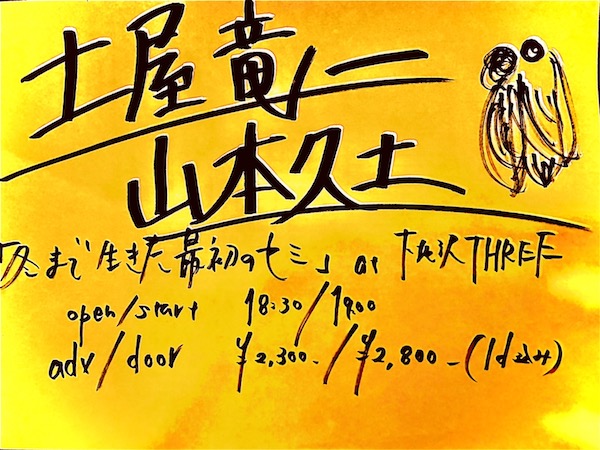 土屋竜一
山本久土
「冬まで生きた最初のセミ」 at 下北沢THREE
open/start 18:30/19:00
adv/door ¥2,300-/¥2,800-(1d込み)